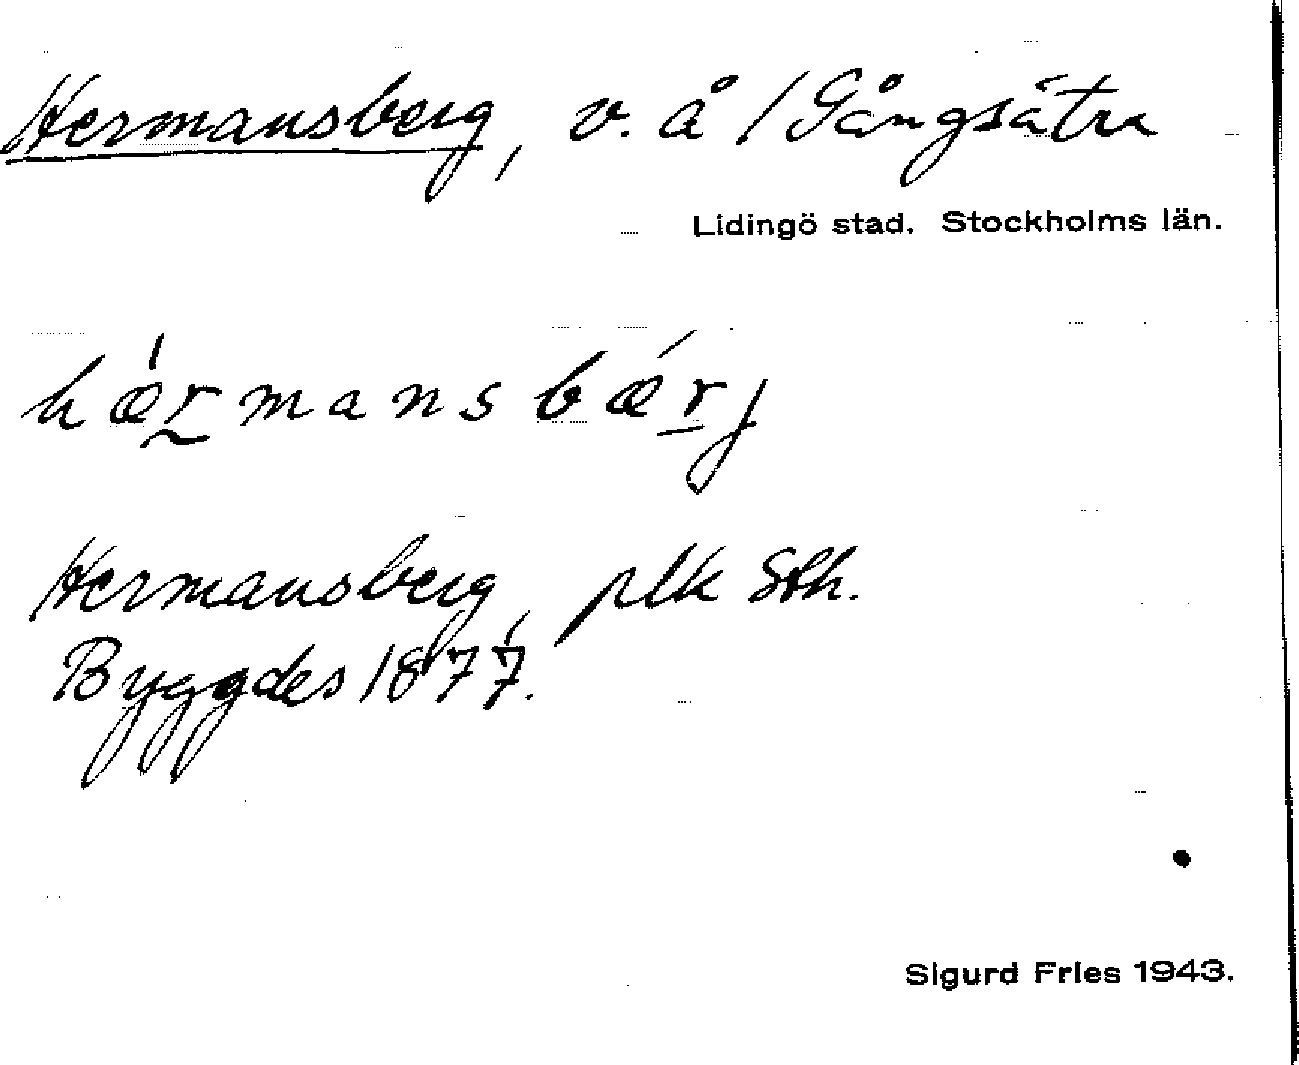 Hermansberg, v. å / Gångsätra
Lidingö stad. Stockholms län.
hæ̀rmansbǽrj
Hermansberg, plk Sth.
Byggdes 1877.
Sigurd Fries 1943.